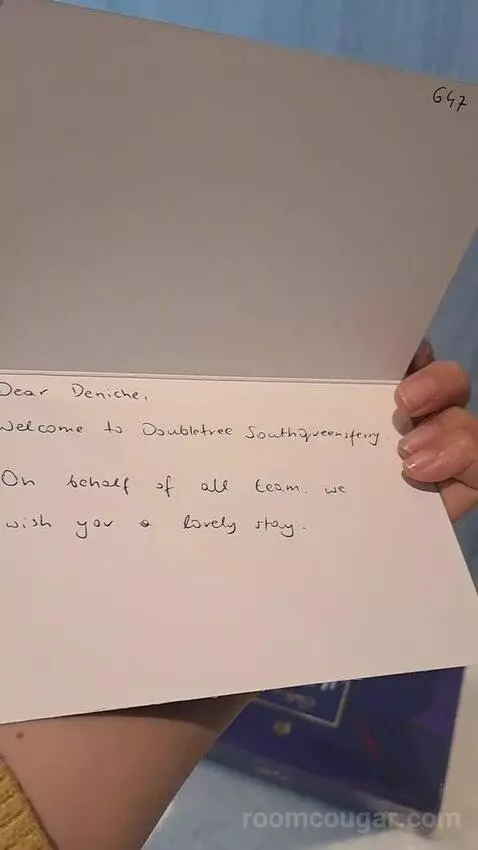 647
Dear Deniche,
Welcome to Doubletree Southqueensferry.
On behalf of all team. we
wish you a lovely stay.
roomcougar.com